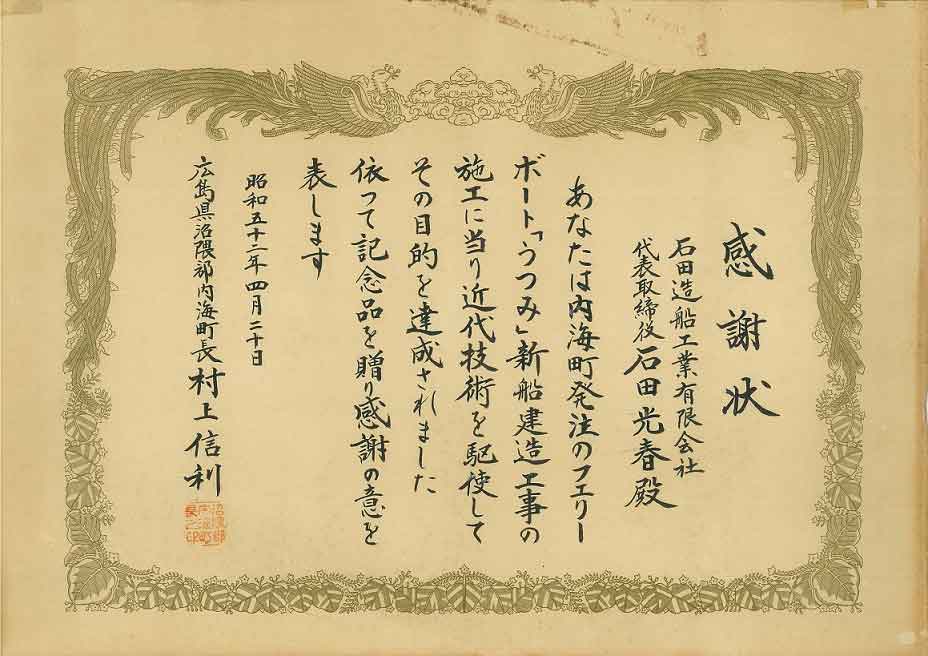 感謝状
石田造船工業有限会社
代表取締役 石田光春殿
あなたは内海町発注のフェリー
ボート「うつみ」新船建造工事の
施工に当り近代技術を駆使して
その目的を達成されました
依って記念品を贈り感謝の意を
表します
昭和五十二年四月二十日
広島県沼隈郡内海町長 村上信利